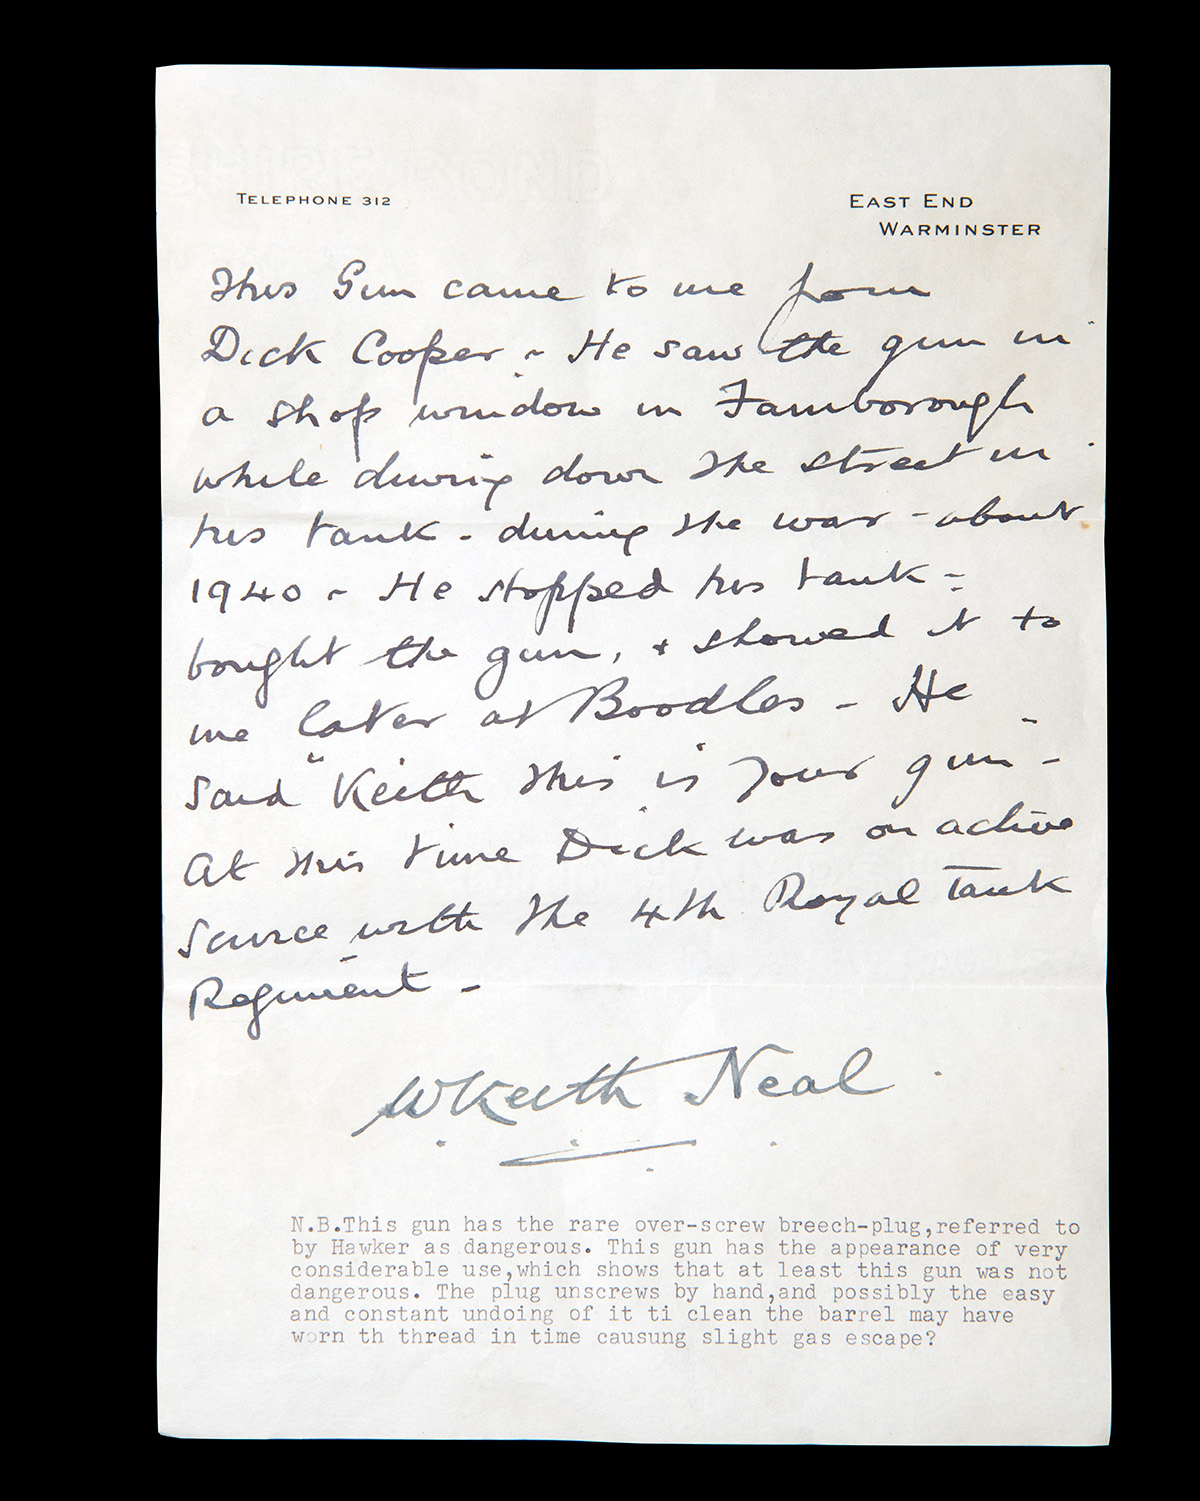 TELEPHONE 312
EAST END
WARMINSTER
This Gun came to me from
Dick Cooper - He saw the gun in
a shop window in Farnborough
while driving down the street in
his tank - during the war - about
1940 - He stopped his tank -
bought the gun, + showed it to
me later at Boodles - He
said "Keith this is your gun" -
At this time Dick was on active
service with the 4th Royal Tank
Regiment -
W Keith Neal
N.B.This gun has the rare over-screw breech-plug,referred to
by Hawker as dangerous. This gun has the appearance of very
considerable use,which shows that at least this gun was not
dangerous. The plug unscrews by hand,and possibly the easy
and constant undoing of it ti clean the barrel may have
worn th thread in time causung slight gas escape?